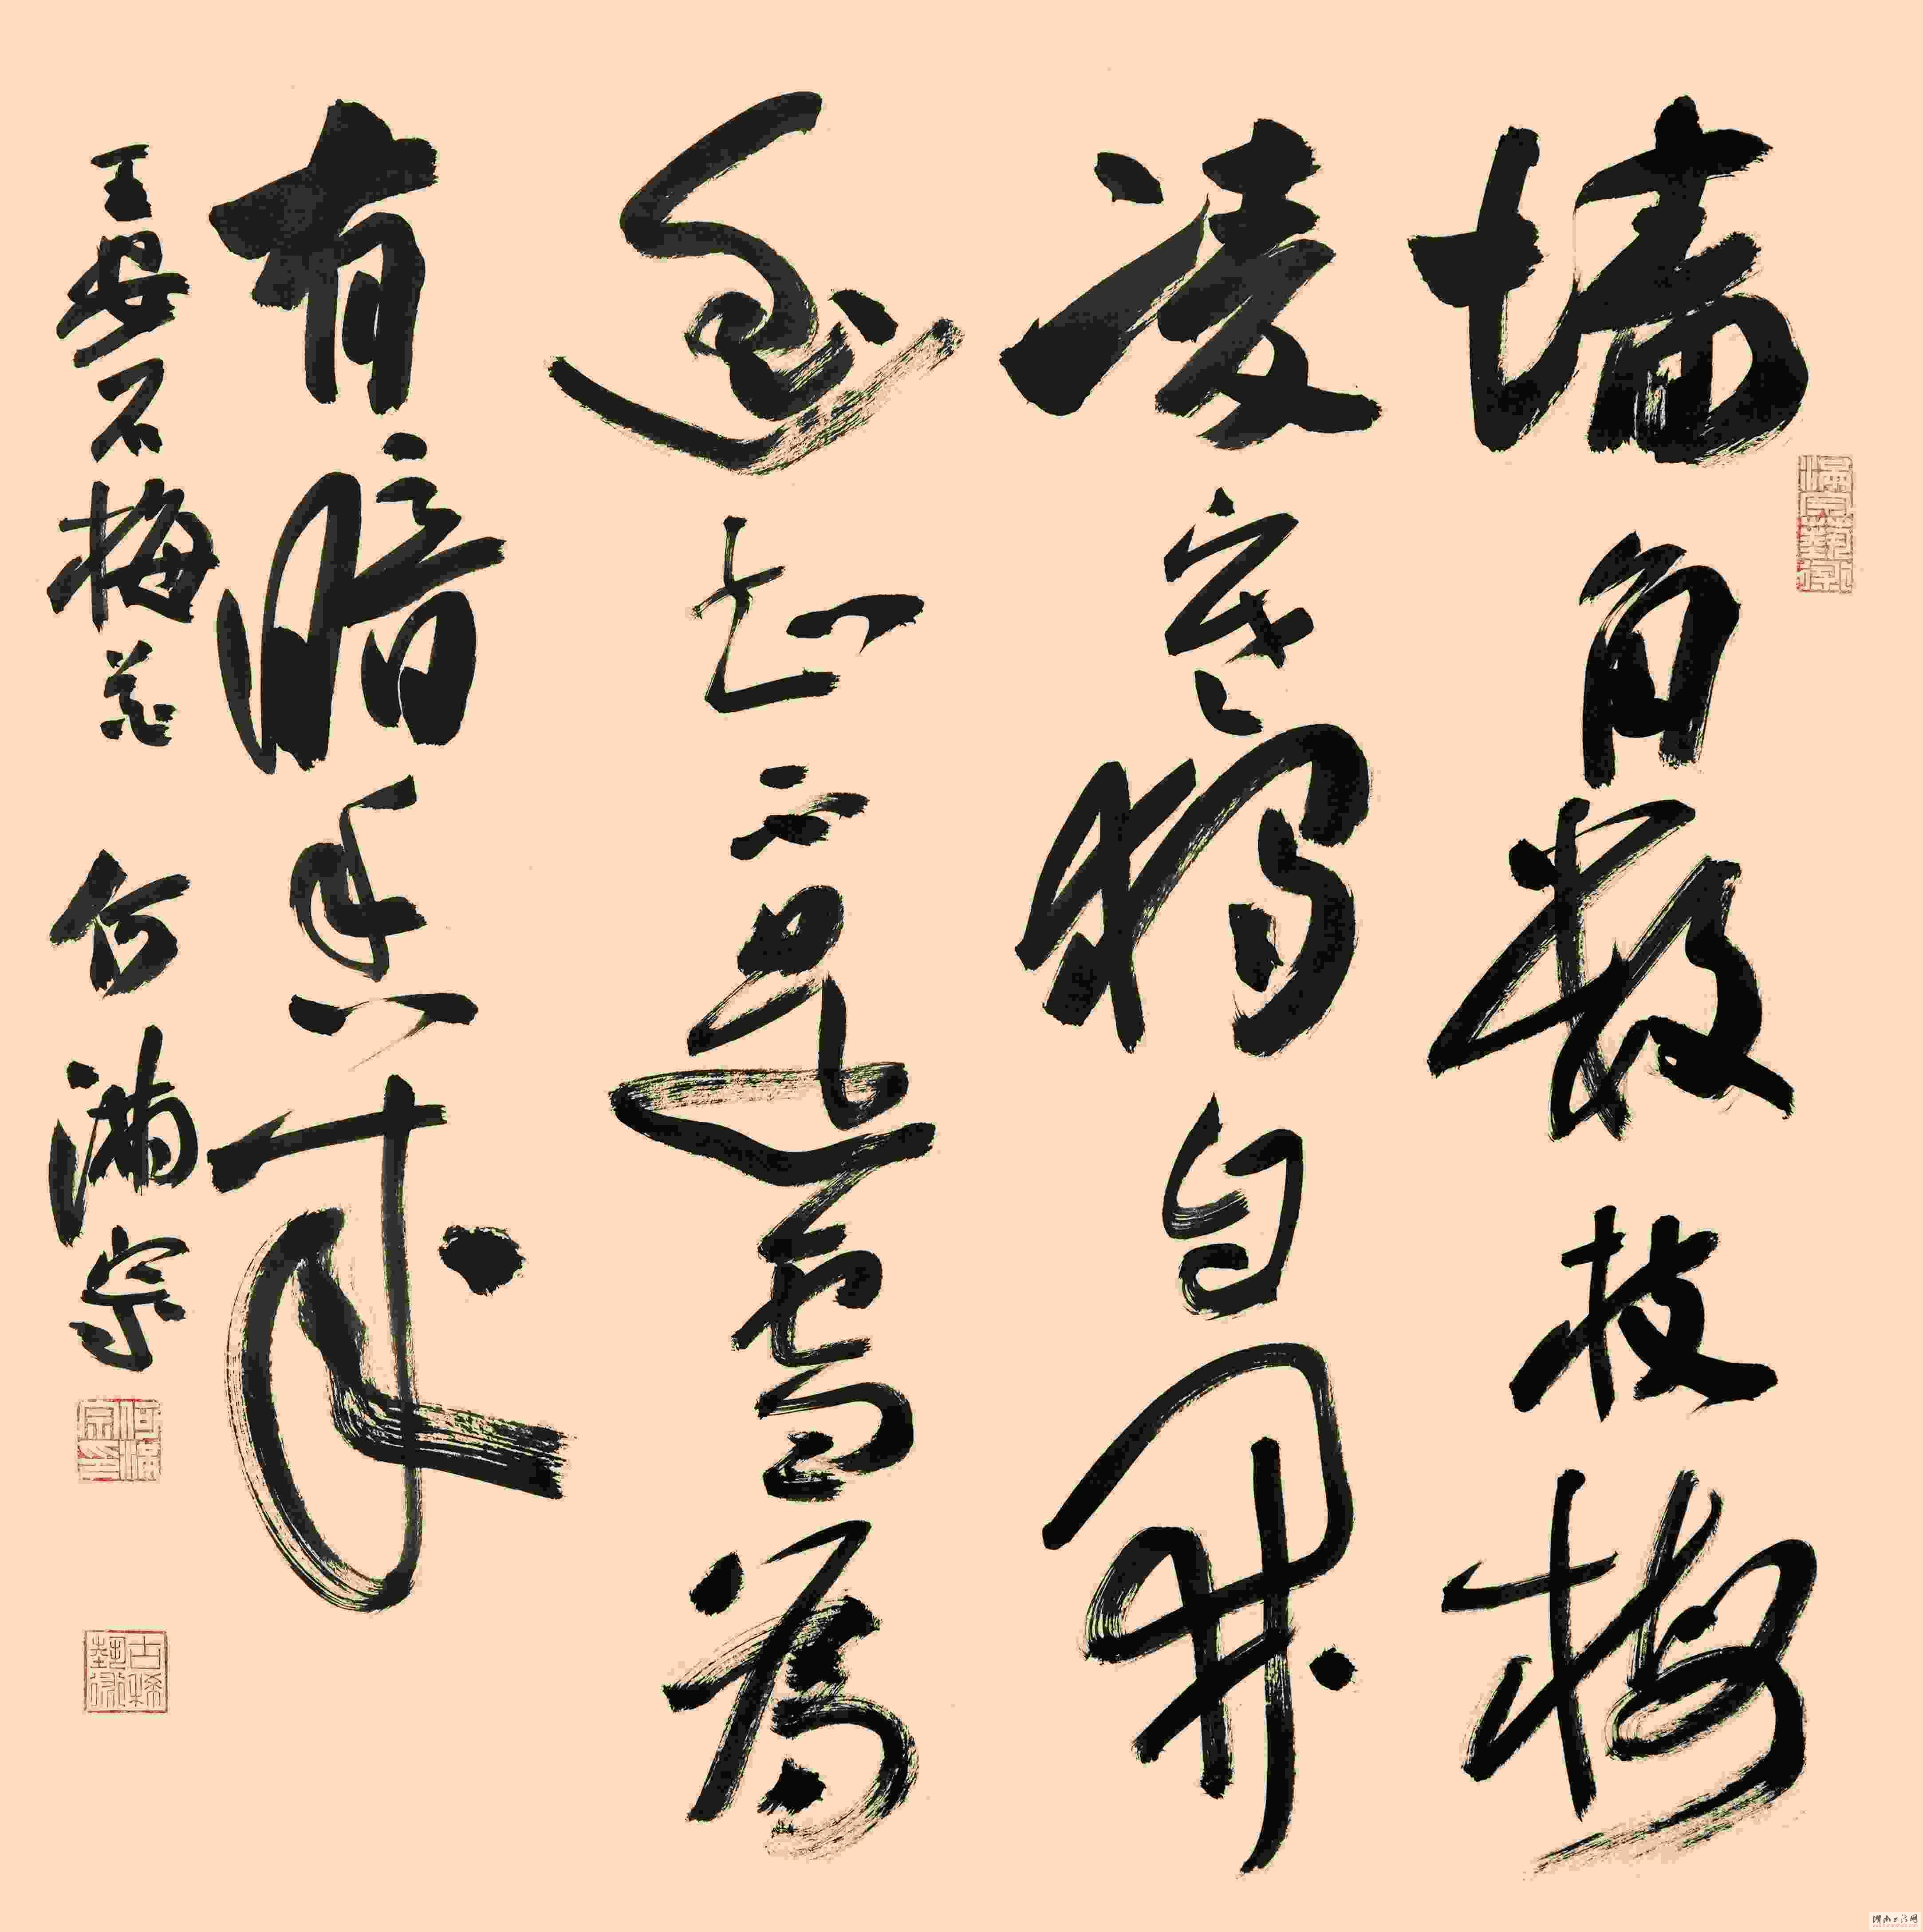 墙角数枝梅
凌寒独自開
遥知不是雪為
有暗香来
王安石梅花 何满宗
何满宗印